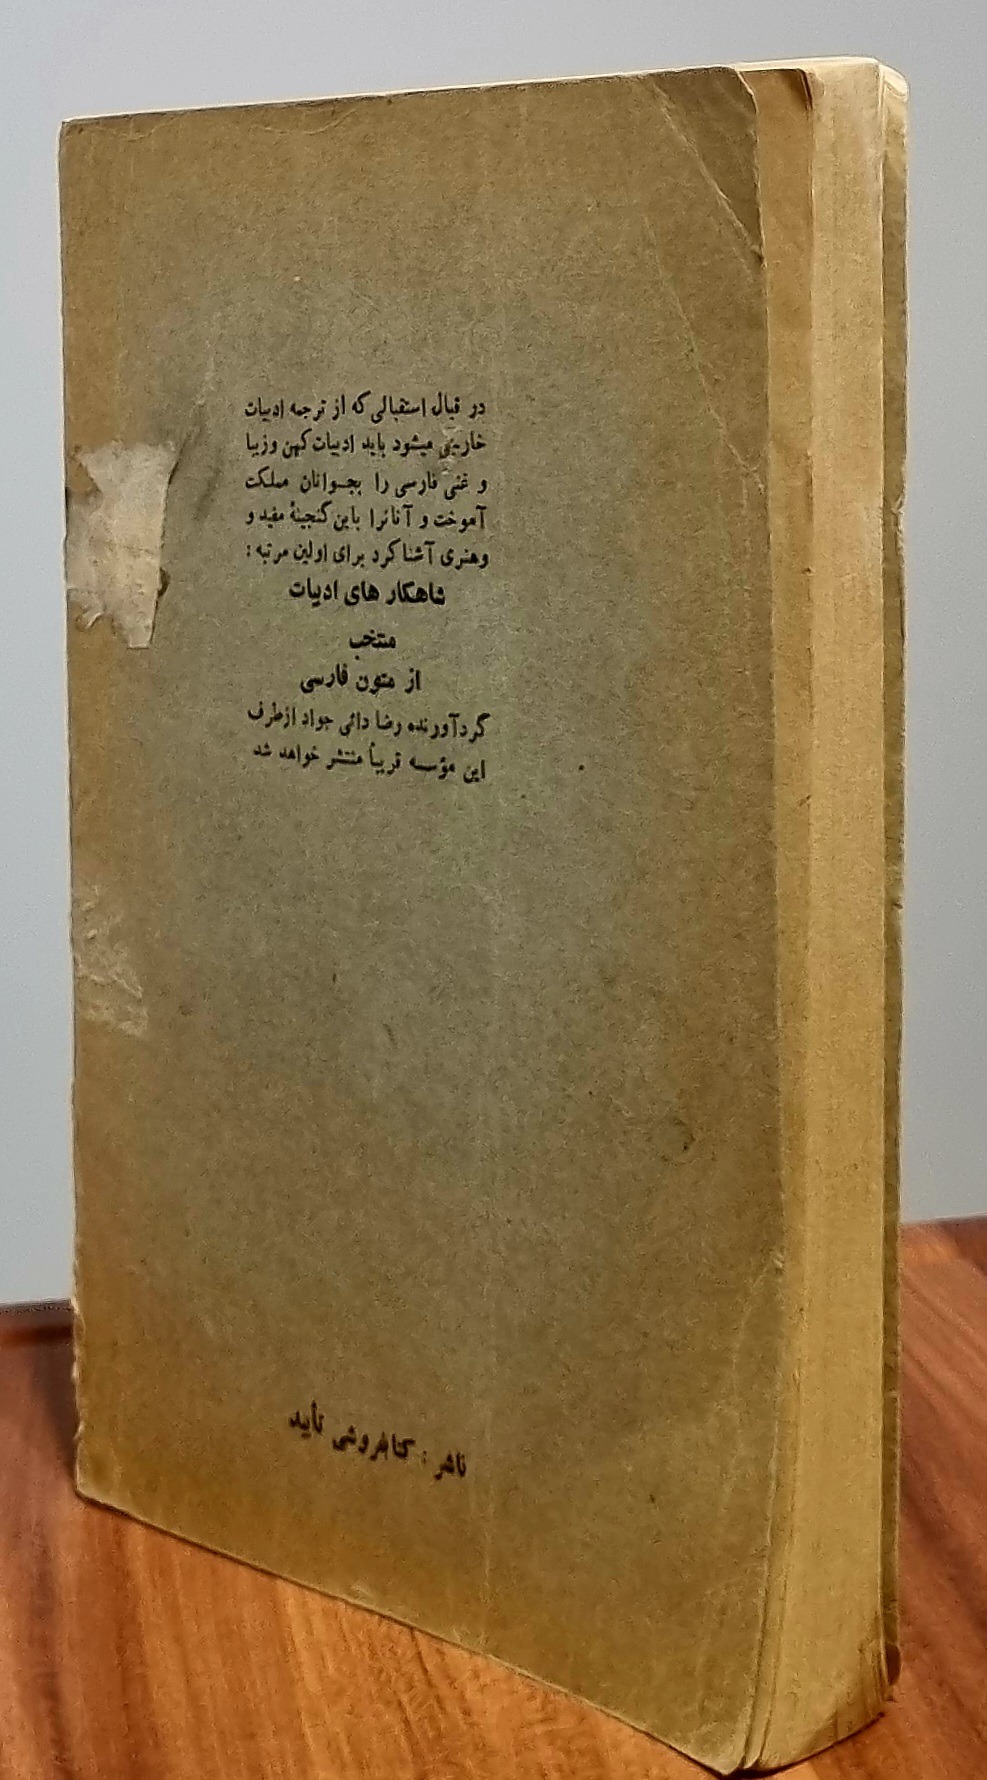 در قبال استقبالی که از ترجمه ادبیات
خارجی میشود باید ادبیات کهن و زیبا
و غنی فارسی را بجوانان مملکت
آموخت و آنانرا باین گنجینهٔ مفید و
وهنری آشنا کرد برای اولین مرتبه :
شاهکار های ادبیات
منتخب
از متون فارسی
گردآورنده رضا دائی جواد از طرف
این مؤسسه قریباً منتشر خواهد شد
ناشر : کتابفروشی تأیید